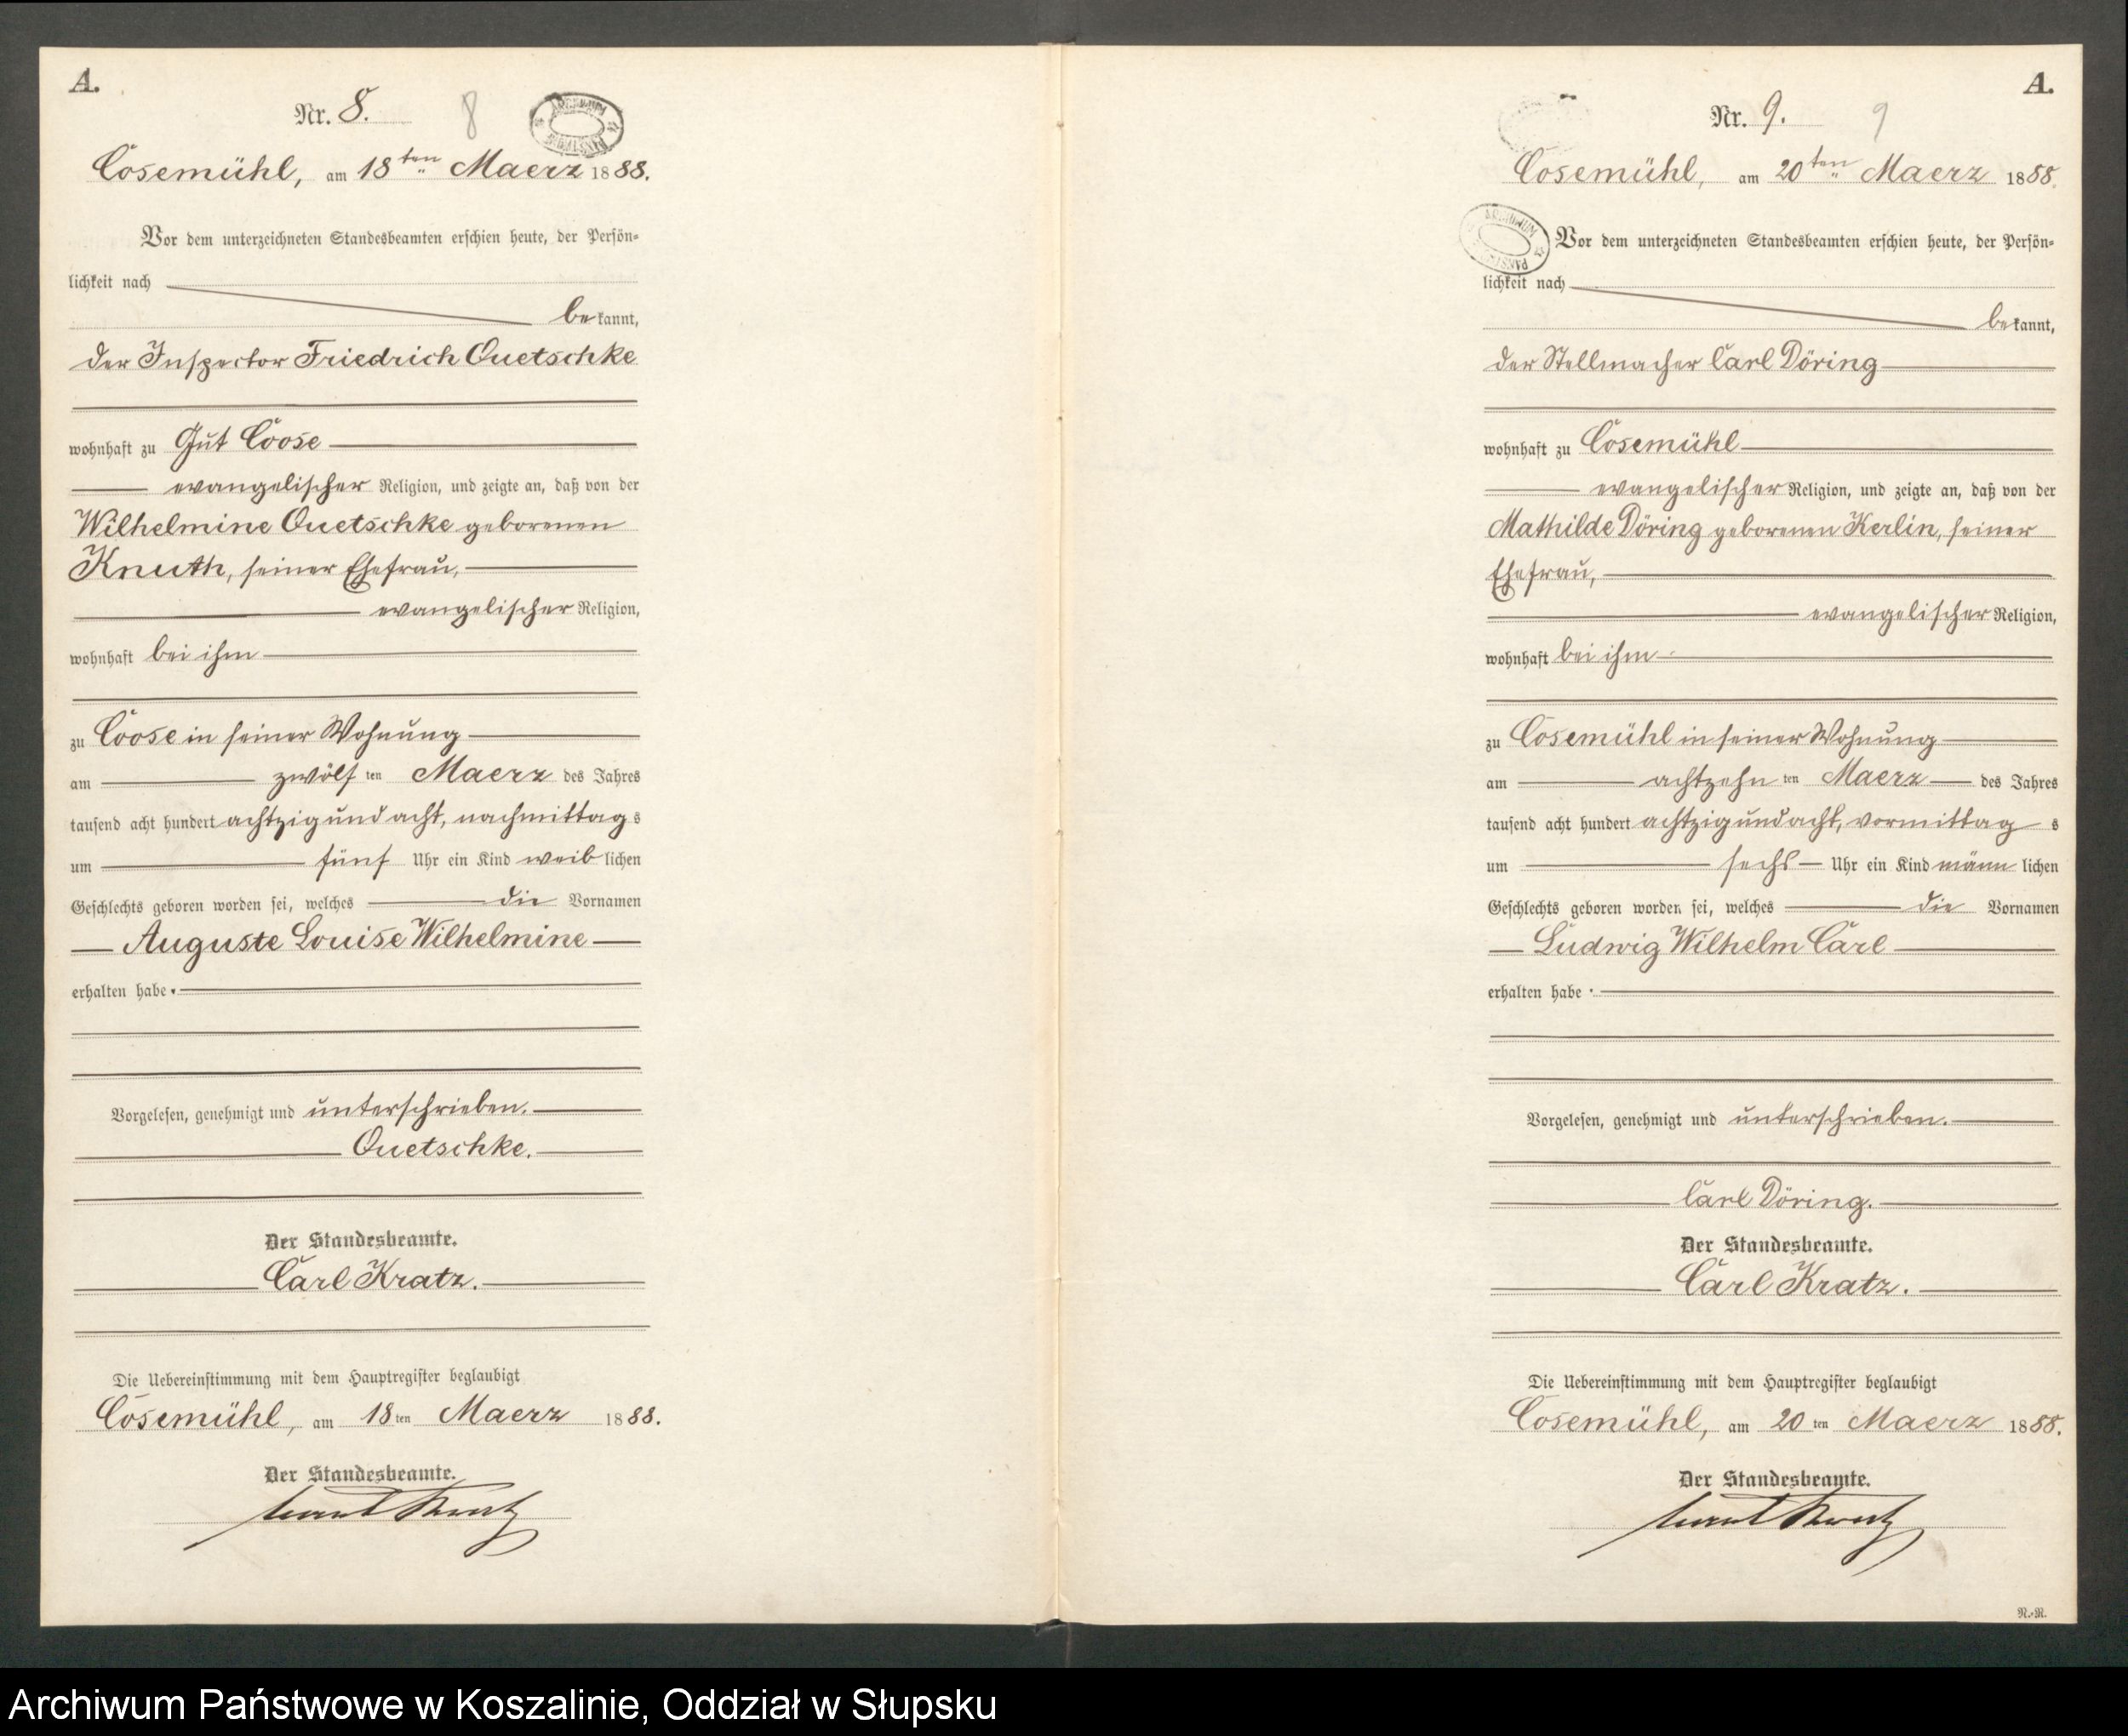 A.
Nr. 8. 8
ARCHIWUM PAŃSTWOWE
Cosemühl, am 18ten Maerz 1888.
Vor dem unterzeichneten Standesbeamten erschien heute, der Persön-
lichkeit nach
bekannt,
der Inspector Friedrich Quetschke
wohnhaft zu Gut Coose
evangelischer Religion, und zeigte an, daß von der
Wilhelmine Quetschke geborenen
Knuth, seiner Ehefrau,
evangelischer Religion,
wohnhaft bei ihm
zu Coose in seiner Wohnung
am zwölf ten Maerz des Jahres
tausend acht hundert achtzig und acht, nachmittags
um fünf Uhr ein Kind weiblichen
Geschlechts geboren worden sei, welches die Vornamen
Auguste Louise Wilhelmine
erhalten habe.
Vorgelesen, genehmigt und unterschrieben.
Quetschke.
Der Standesbeamte.
Carl Kratz.
Die Uebereinstimmung mit dem Hauptregister beglaubigt
Cosemühl, am 18ten Maerz 1888.
Der Standesbeamte.
Carl Kratz
A.
Nr. 9. 9
Cosemühl, am 20ten Maerz 1888.
ARCHIWUM PAŃSTWOWE
Vor dem unterzeichneten Standesbeamten erschien heute, der Persön-
lichkeit nach
bekannt,
der Stellmacher Carl Döring
wohnhaft zu Cosemühl
evangelischer Religion, und zeigte an, daß von der
Mathilde Döring geborenen Kerlin, seiner
Ehefrau,
evangelischer Religion,
wohnhaft bei ihm
zu Cosemühl in seiner Wohnung
am achtzehn ten Maerz des Jahres
tausend acht hundert achtzig und acht, vormittags
um sechs Uhr ein Kind männlichen
Geschlechts geboren worden sei, welches die Vornamen
Ludwig Wilhelm Carl
erhalten habe.
Vorgelesen, genehmigt und unterschrieben.
Carl Döring.
Der Standesbeamte.
Carl Kratz.
Die Uebereinstimmung mit dem Hauptregister beglaubigt
Cosemühl, am 20ten Maerz 1888.
Der Standesbeamte.
Carl Kratz
N.-N.
Archiwum Państwowe w Koszalinie, Oddział w Słupsku